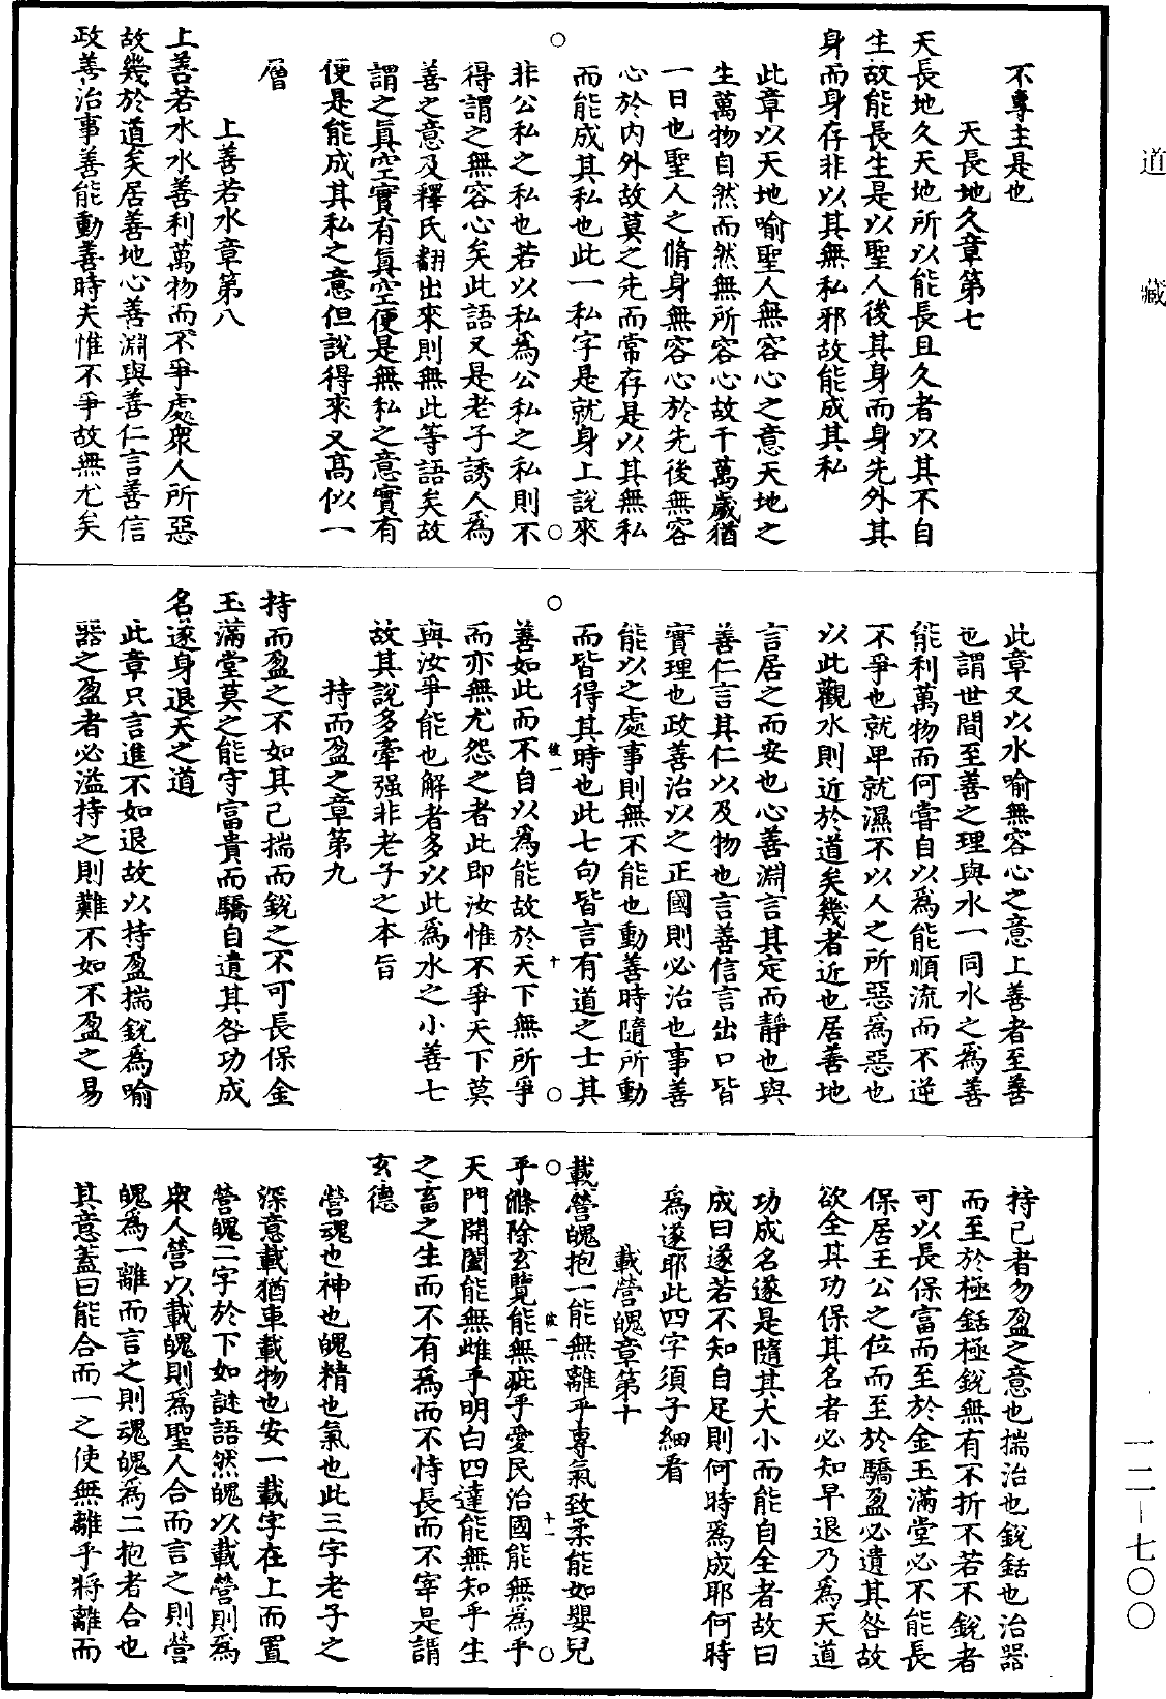 道藏
不專主是也
天長地久章第七
天長地久天地所以能長且久者以其不自
生故能長生是以聖人後其身而身先外其
身而身存非以其無私邪故能成其私
此章以天地喻聖人無容心之意天地之
生萬物自然而然無所容心故千萬歲猶
一日也聖人之脩身無容心於先後無容
心於內外故莫之先而常存是以其無私
而能成其私也此一私字是就身上說來
非公私之私也若以私爲公私之私則不
得謂之無容心矣此語又是老子誘人爲
善之意及釋氏翻出來則無此等語矣故
謂之眞空實有眞空便是無私之意實有
便是能成其私之意但說得來又高似一
層
上善若水章第八
上善若水水善利萬物而不爭處衆人所惡
故幾於道矣居善地心善淵與善仁言善信
政善治事善能動善時夫惟不爭故無尤矣
此章又以水喻無容心之意上善者至善
也謂世間至善之理與水一同水之爲善
能利萬物而何嘗自以爲能順流而不逆
不爭也就卑就濕不以人之所惡爲惡也
以此觀水則近於道矣幾者近也居善地
言居之而安也心善淵言其定而靜也與
善仁言其仁以及物也言善信言出口皆
實理也政善治以之正國則必治也事善
能以之處事則無不能也動善時隨所動
而皆得其時也此七句皆言有道之士其
彼一 十
善如此而不自以爲能故於天下無所爭
而亦無尤怨之者此即汝惟不爭天下莫
與汝爭能也解者多以此爲水之小善七
故其說多牽强非老子之本旨
持而盈之章第九
持而盈之不如其已揣而銳之不可長保金
玉滿堂莫之能守富貴而驕自遺其咎功成
名遂身退天之道
此章只言進不如退故以持盈揣銳爲喻
器之盈者必溢持之則難不如不盈之易
持已者勿盈之意也揣治也銳銛也治器
而至於極銛極銳無有不折不若不銳者
可以長保富而至於金玉滿堂必不能長
保居王公之位而至於驕盈必遺其咎故
欲全其功保其名者必知早退乃爲天道
功成名遂是隨其大小而能自全者故曰
成曰遂若不知自足則何時爲成耶何時
爲遂耶此四字須子細看
載營魄章第十
載營魄抱一能無離乎專氣致柔能如嬰兒
彼一 十一
乎滌除玄覽能無疵乎愛民治國能無爲乎
天門開闔能無雌乎明白四達能無知乎生
之畜之生而不有爲而不恃長而不宰是謂
玄德
營魂也神也魄精也氣也此三字老子之
深意載猶車載物也安一載字在上而置
營魄二字於下如謎語然魄以載營則爲
衆人營以載魄則爲聖人合而言之則營
魄爲一離而言之則魂魄爲二抱者合也
其意蓋曰能合而一之使無離乎將離而
一二－七〇〇